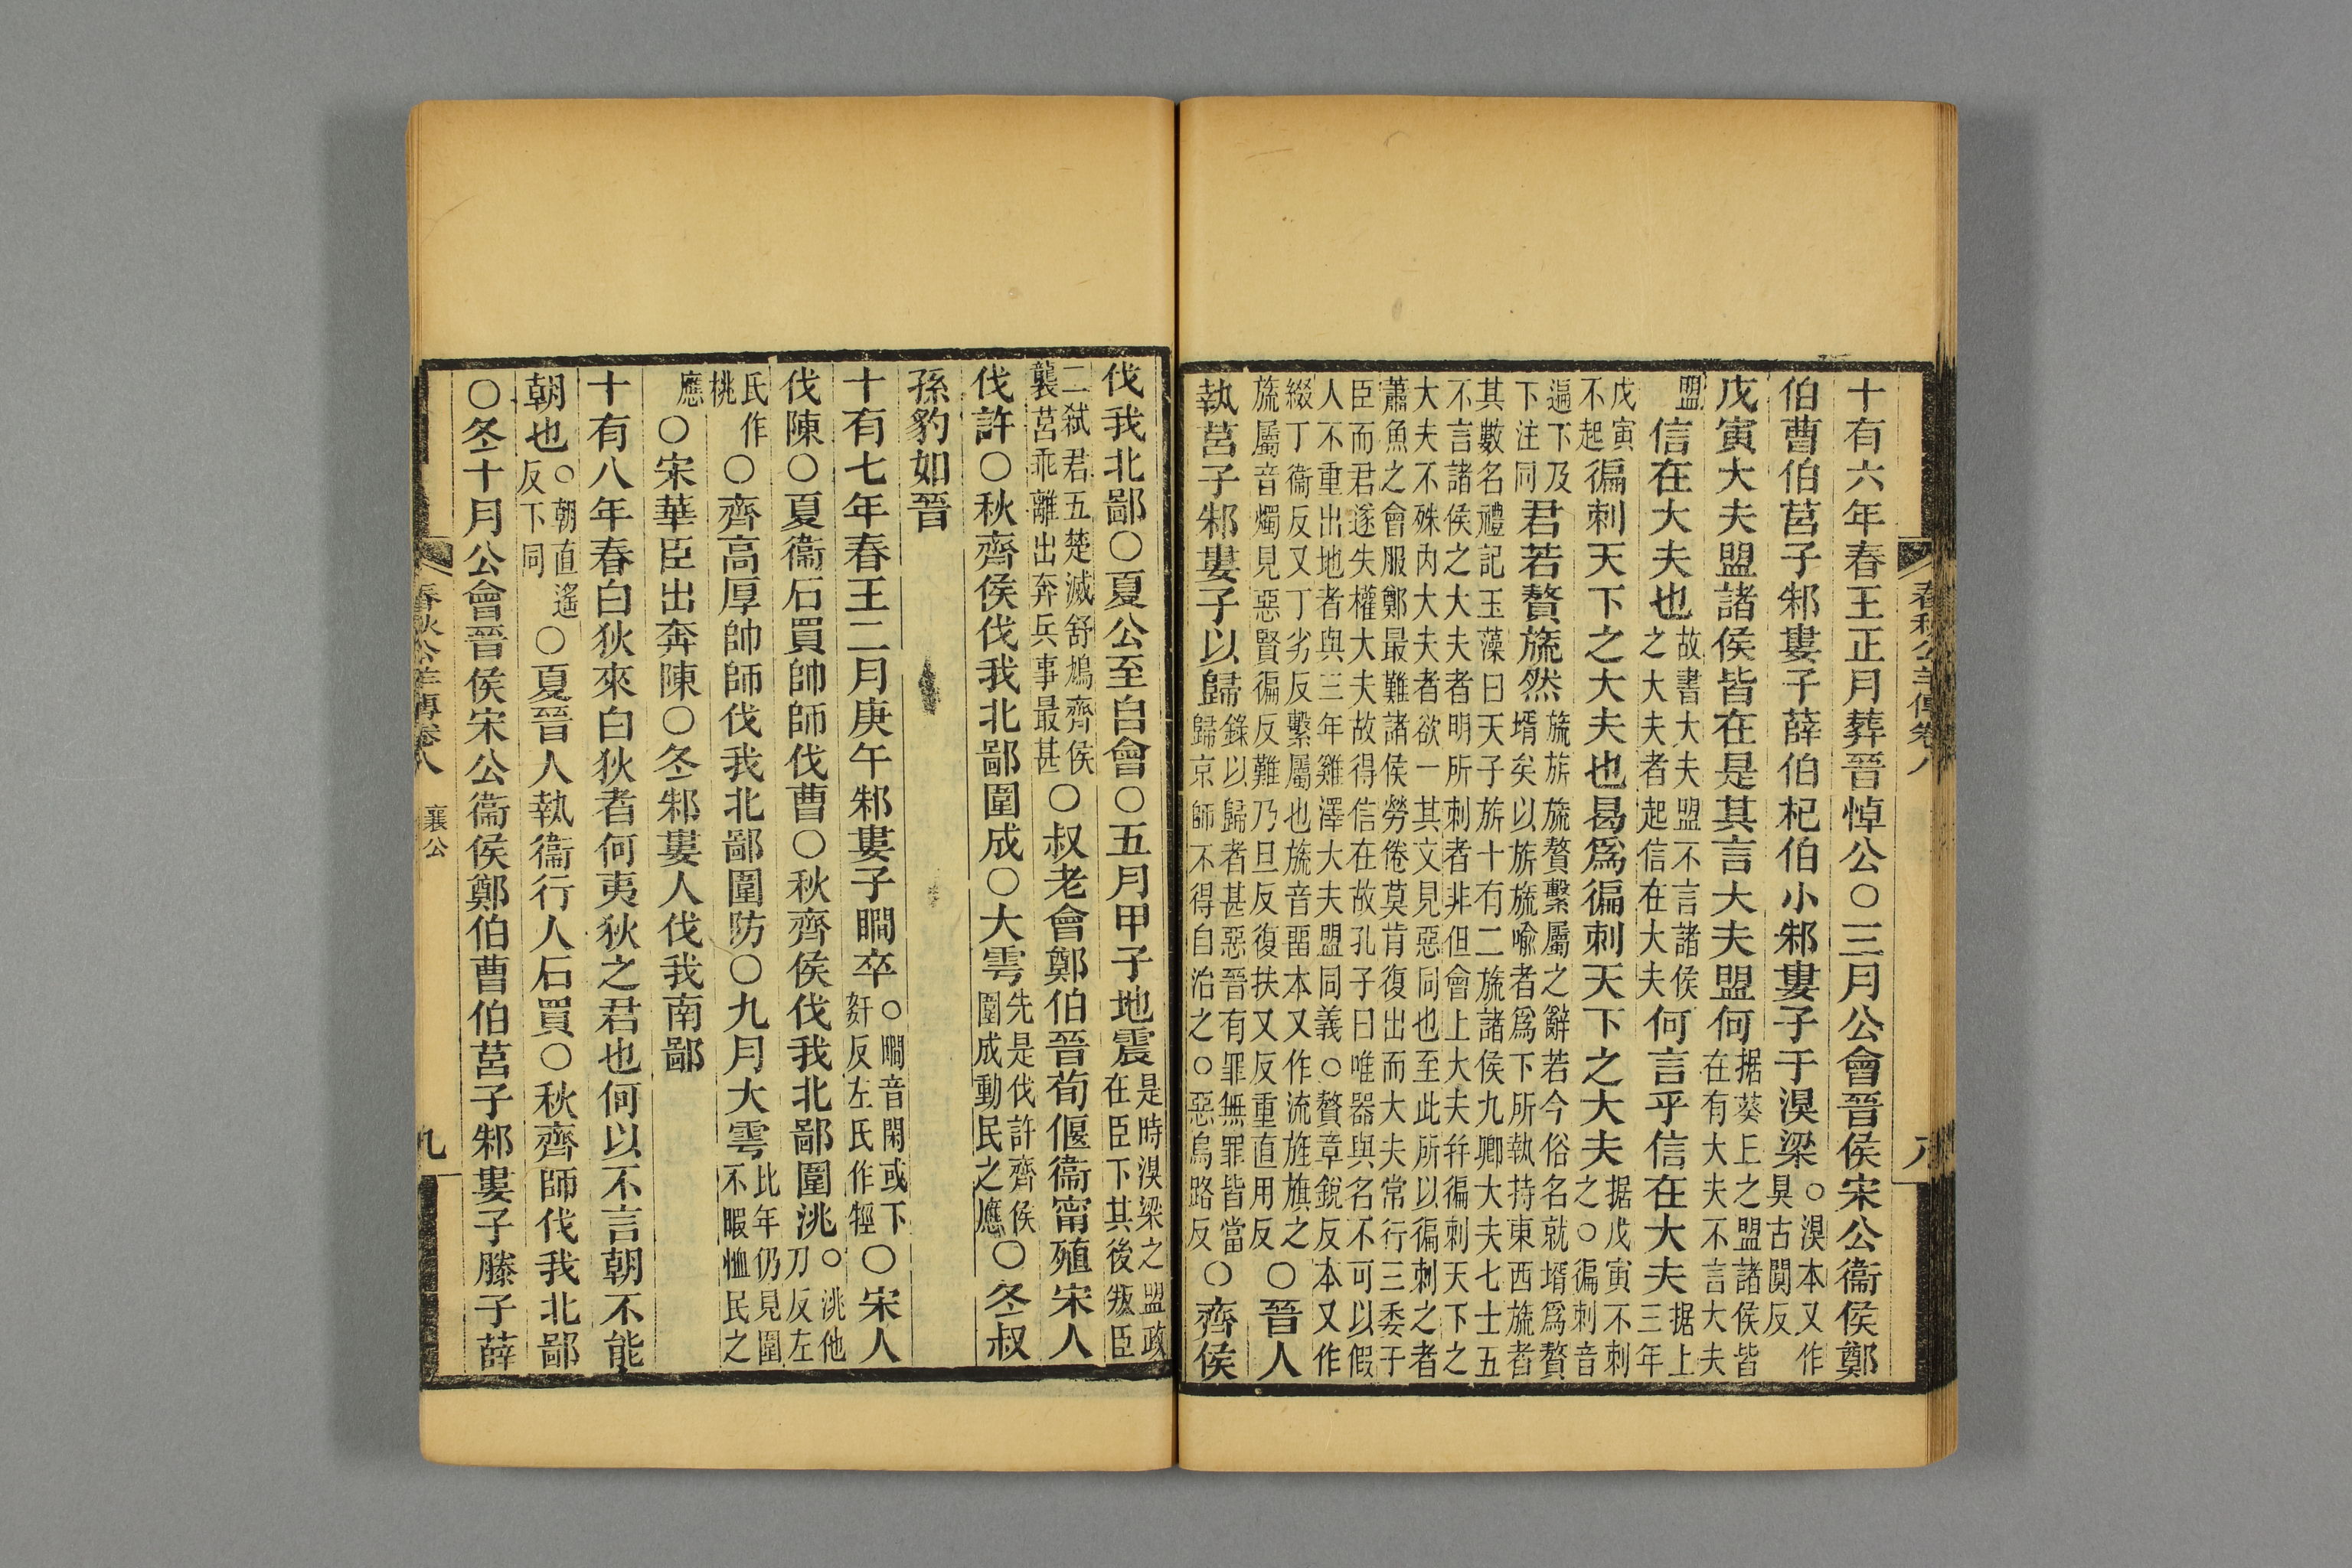 十有六年春王正月葬晉悼公○三月公會晉侯宋公衞侯鄭
伯曹伯莒子邾婁子薛伯杞伯小邾婁子于湨梁○湨本又作昊古闃反
戊寅大夫盟諸侯皆在是其言大夫盟何据葵丘之盟諸侯皆在有大夫不言大夫
盟信在大夫也故書大夫盟不言諸侯之大夫者起信在大夫何言乎信在大夫据上三年
戊寅不起徧刺天下之大夫也曷爲徧刺天下之大夫据戊寅不刺之○徧刺音
遍下及下注同君若贅旒然旒旂旒贅繫屬之辭若今俗名就壻爲贅壻矣以旂旒喻者爲下所執持東西旒者
其數名禮記玉藻曰天子旂十有二旒諸侯九卿大夫七士五不言諸侯之大夫者明所刺者非但會上大夫幷徧刺天下之
大夫不殊內大夫者欲一其文見惡同也至此所以徧刺之者蕭魚之會服鄭最難諸侯勞倦莫肯復出而大夫常行三委于
臣而君遂失權大夫故得信在故孔子曰唯器與名不可以假人不重出地者與三年雞澤大夫盟同義○贅章銳反本又作
綴丁衞反又丁劣反繫屬也旒音畱本又作流旌旗之旒屬音燭見惡賢徧反難乃旦反復扶又反重直用反○晉人
執莒子邾婁子以歸錄以歸者甚惡晉有罪無罪皆當歸京師不得自治之○惡烏路反○齊侯
春秋公羊傳卷八
八
伐我北鄙○夏公至自會○五月甲子地震是時湨梁之盟政在臣下其後叛臣
二弑君五楚滅舒鳩齊侯襲莒乖離出奔兵事最甚○叔老會鄭伯晉荀偃衞甯殖宋人
伐許○秋齊侯伐我北鄙圍成○大雩先是伐許齊侯圍成動民之應○冬叔
孫豹如晉
十有七年春王二月庚午邾婁子瞷卒○瞷音閑或下姧反左氏作牼○宋人
伐陳○夏衞石買帥師伐曹○秋齊侯伐我北鄙圍洮○洮他刀反左
氏作桃○齊高厚帥師伐我北鄙圍防○九月大雩比年仍見圍不暇恤民之
應○宋華臣出奔陳○冬邾婁人伐我南鄙
十有八年春白狄來白狄者何夷狄之君也何以不言朝不能
朝也○朝直遙反下同○夏晉人執衞行人石買○秋齊師伐我北鄙
○冬十月公會晉侯宋公衞侯鄭伯曹伯莒子邾婁子滕子薛
春秋公羊傳卷八
襄公
九